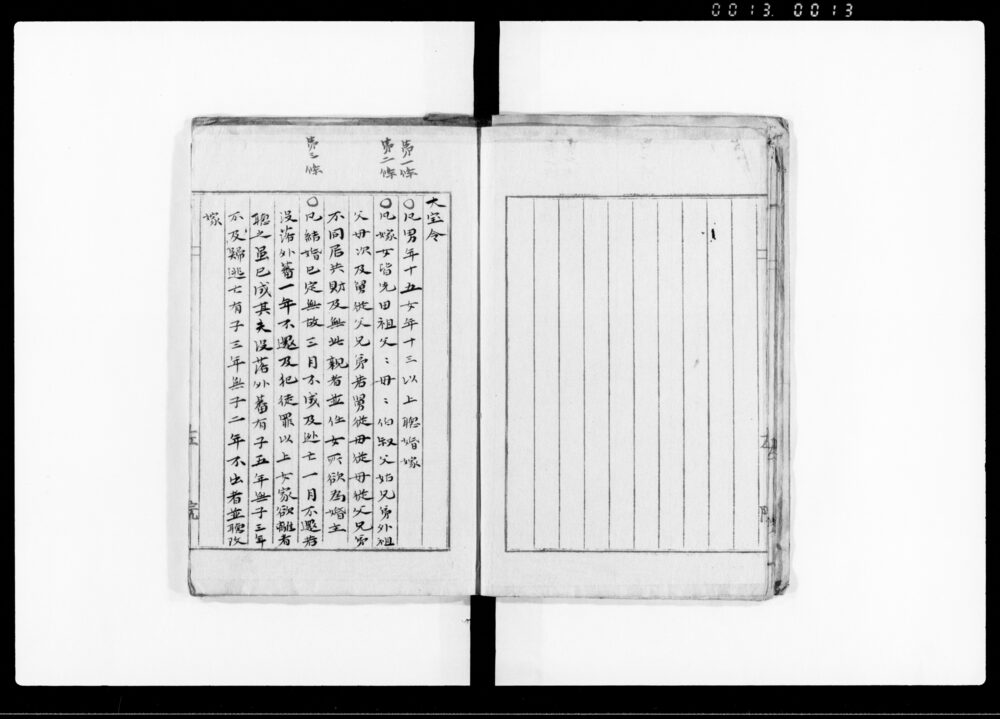 0013. 0013
第一條
第二條
第三條
大宝令
〇凡男年十五女年十三以上聴婚嫁
〇凡嫁女皆先由祖父〻母〻伯叔父姑兄弟外祖
父母次及舅従父兄弟若舅従母従父兄弟
不同居共財及無此親者並任女所欲為婚主
〇凡結婚已定無故三月不成及逃亡一月不還若
没落外蕃一年不還及犯徒罪以上女家欲離者
聴之虽已成其夫没落外蕃有子五年無子三年
不及歸逃亡有子三年無子二年不出者並聴改
嫁
左
院